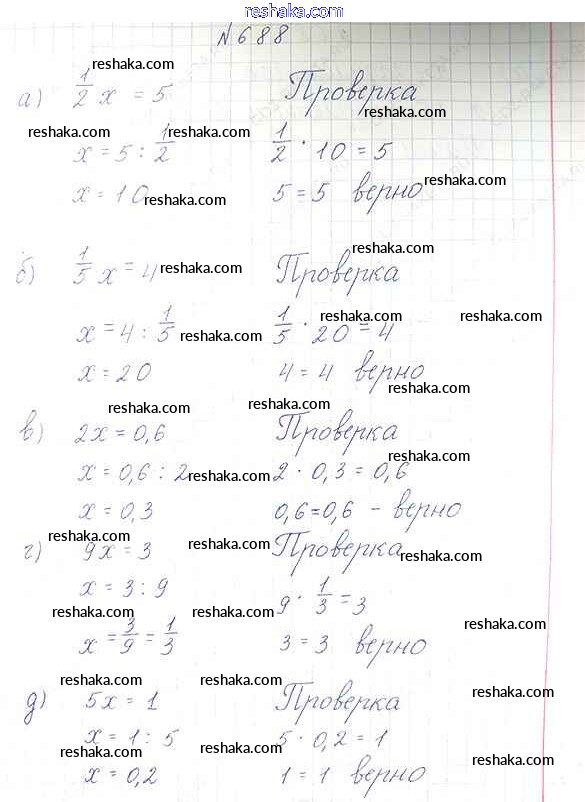 reshaka.com
№ 688
reshaka.com
а) 1/2 x = 5 Проверка
reshaka.com reshaka.com
x = 5 : 1/2 1/2 · 10 = 5
x = 10 reshaka.com 5 = 5 верно reshaka.com
reshaka.com
б) 1/5 x = 4 reshaka.com Проверка
x = 4 : 1/5 reshaka.com 1/5 · 20 = 4 reshaka.com reshaka.com
x = 20 4 = 4 верно
reshaka.com
reshaka.com reshaka.com
в) 2x = 0,6 Проверка
reshaka.com
x = 0,6 : 2 reshaka.com 2 · 0,3 = 0,6
x = 0,3 0,6 = 0,6 - верно
reshaka.com reshaka.com
г) 9x = 3 Проверка reshaka.com
x = 3 : 9 9 · 1/3 = 3
reshaka.com reshaka.com reshaka.com
x = 3/9 = 1/3 3 = 3 верно
reshaka.com reshaka.com
д) 5x = 1 Проверка
x = 1 : 5 5 · 0,2 = 1
reshaka.com reshaka.com reshaka.com
x = 0,2 1 = 1 верно